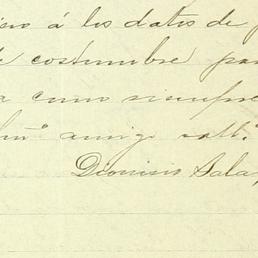 á los datos de
de costumbre
a como siempre
amigo
Dionisio Sala